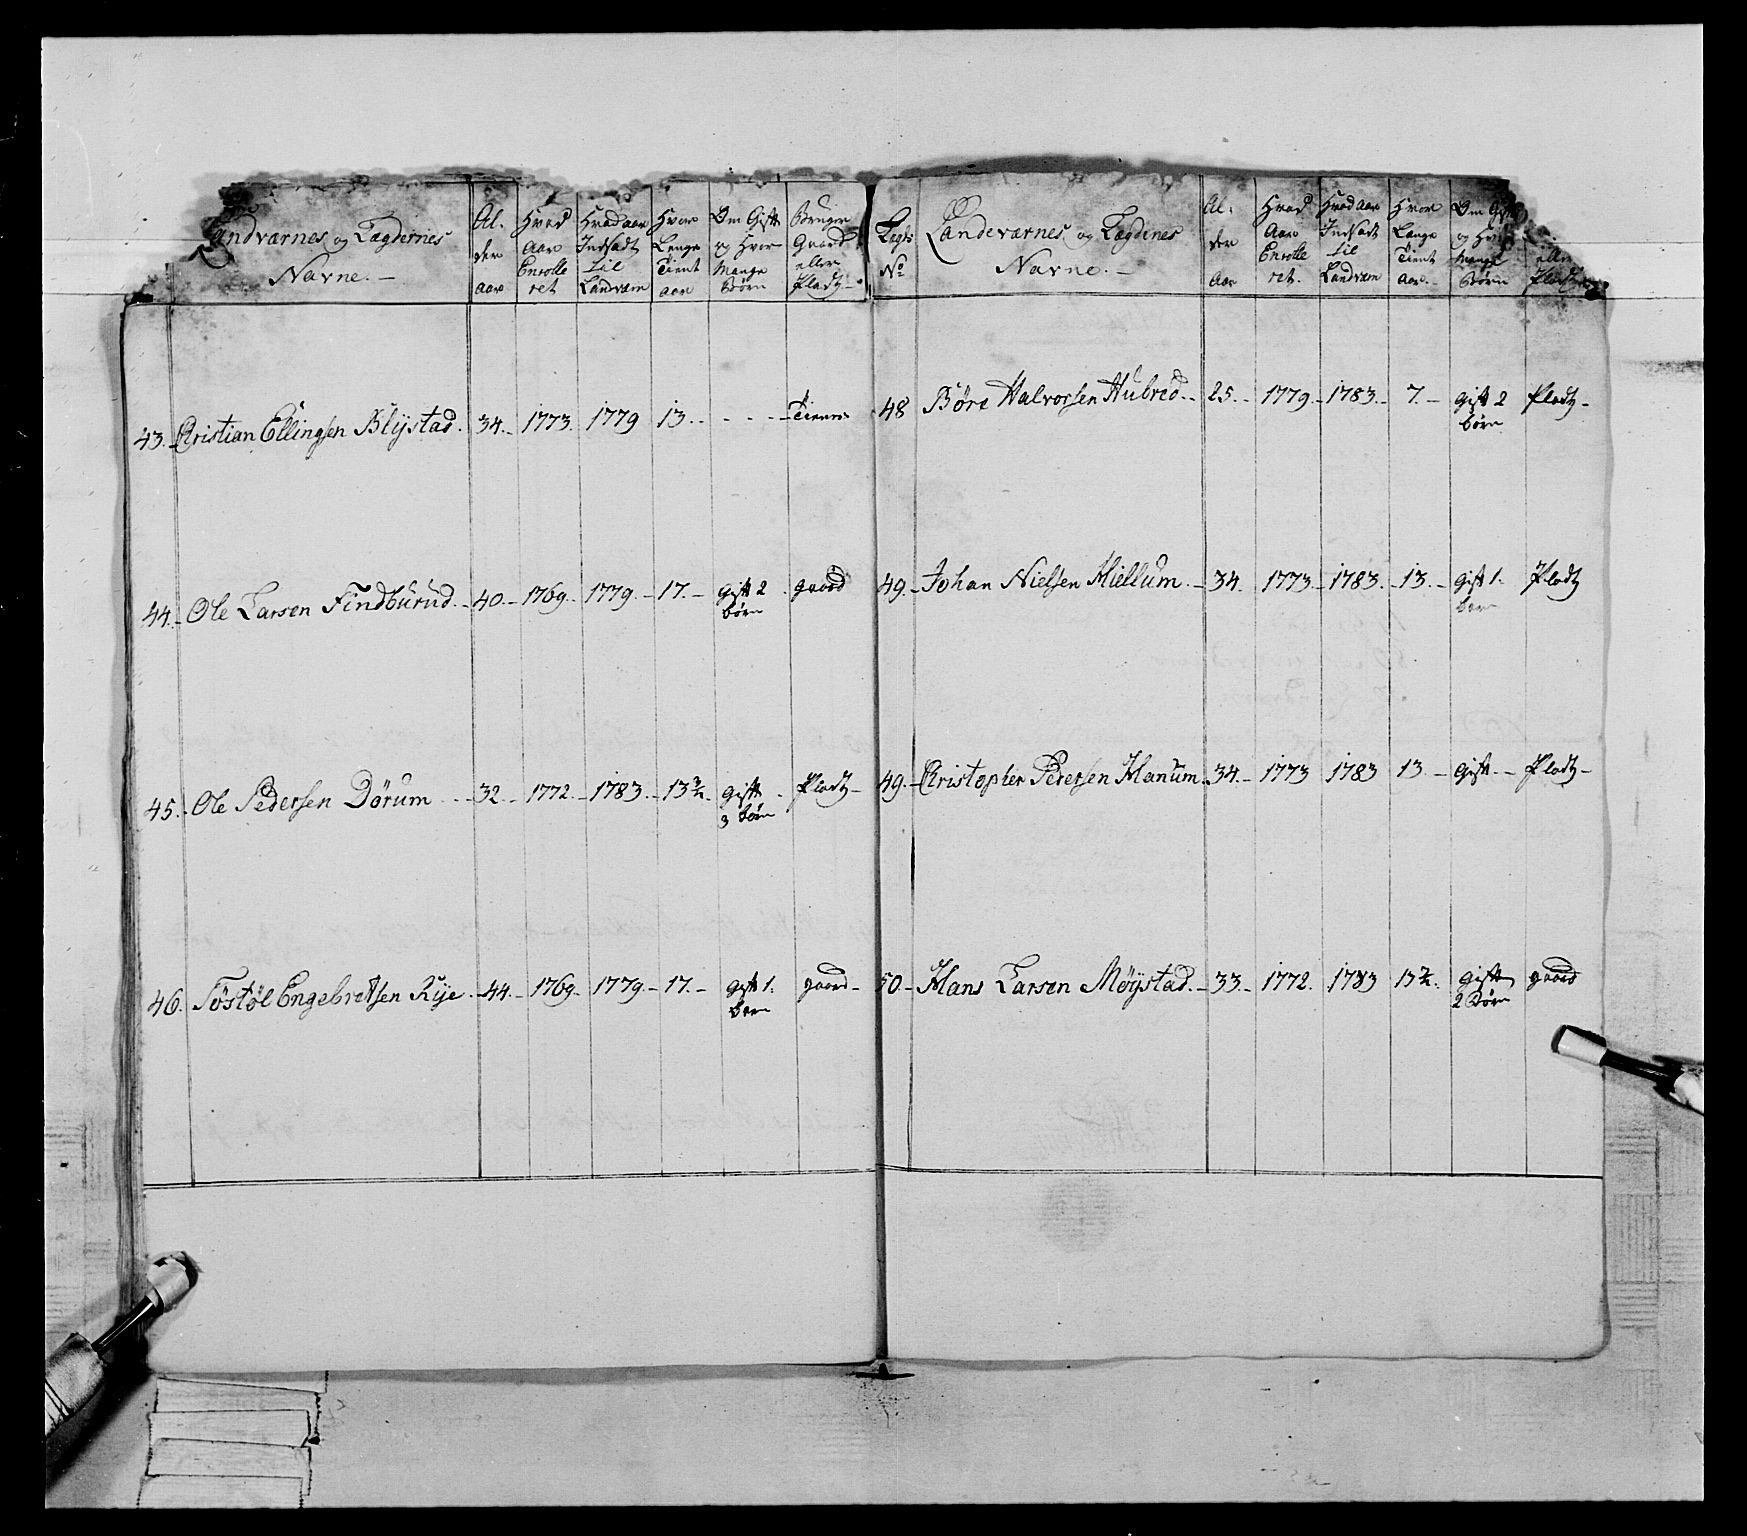 Landværnes og Lægdernes
Navne. —
Al-
der
aar
Hvad
aar
Enrolle
ret
Hvad aar
Indsadt
til
Landværn
Hvor
Længe
Tient
aar
Om Gift
og Hvor
Mange
Børn
Bruger
Gaard
eller
Pladz
43. Christian Ellingsen Blÿstad. 34. 1773. 1779 13. - - - Tiener
44. Ole Larsen Findburud. 40. 1769. 1779. 17. gift 2
børn
gaard
45. Ole Pedersen Dörum 32. 1772. 1783. 13 3/4. gift
3 børn
Pladz
46. Töstöl Engebretsen Rije. 44. 1769. 1779. 17. gift 1.
barn
gaard
Lægds
No
Landeværnes og Lægdenes
Navne. —
Al-
der
aar
Hvad
aar
Enrolle
ret.
Hvad aar
Indsadt
til
Landværn
Hvor
Længe
Tient
aar.
Om Gift
og Hvor
Mange
Børn
eller
Pladz
48 Böre Halvorsen Hubred. 25. 1779. 1783. 7. gift 2
børn
Pladz
49. Johan Nielsen Hiellum. 34. 1773. 1783. 13. gift 1.
barn
Pladz
49. Christopher Pedersen Hanum. 34. 1773 1783 13 gift Pladz
50. Hans Larsen Möÿstad. 33. 1772. 1783 gift
2 Børn
gaard